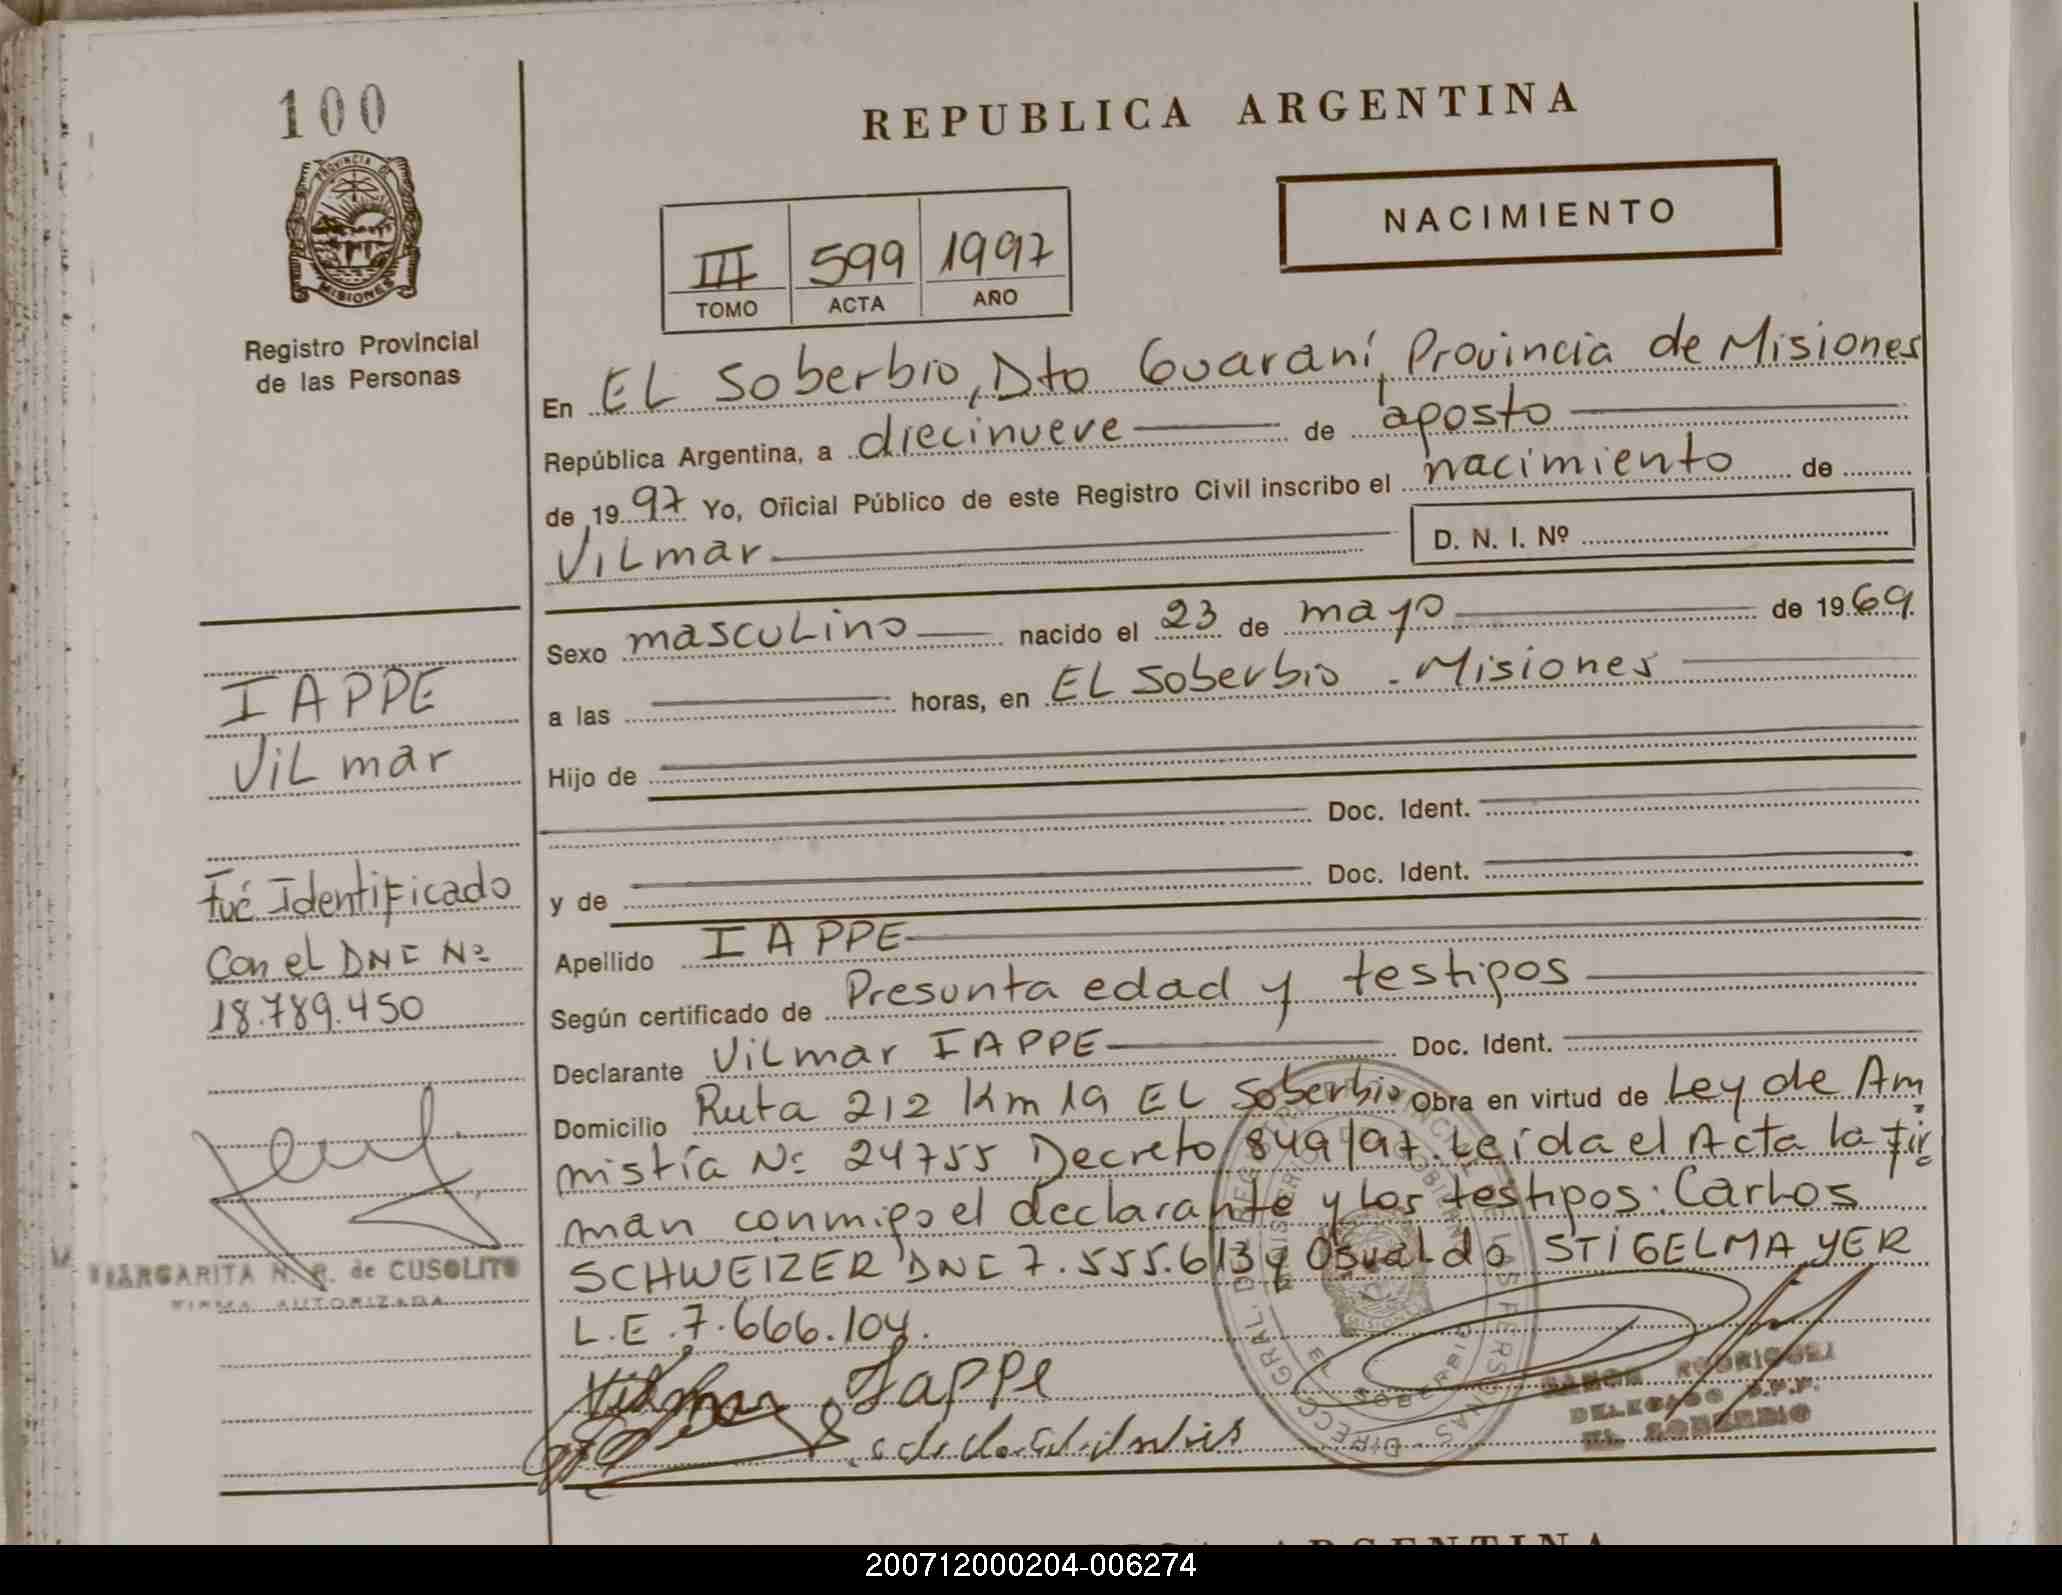 100
PROVINCIA DE
MISIONES
Registro Provincial
de las Personas
IAPPE
Vilmar
Fué Identificado
Con el DNI Nº
18.789.450
MARGARITA N. R. de CUSOLITO
FIRMA AUTORIZADA
REPUBLICA ARGENTINA
NACIMIENTO
III 599 1997
TOMO ACTA AÑO
En EL Soberbio, Dto Guaraní, Provincia de Misiones
República Argentina, a diecinueve de agosto
de 1997 Yo, Oficial Público de este Registro Civil inscribo el nacimiento de
Vilmar D. N. I. Nº
Sexo masculino nacido el 23 de mayo de 1969.
a las horas, en EL Soberbio - Misiones
Hijo de
Doc. Ident.
y de Doc. Ident.
Apellido IAPPE
Según certificado de Presunta edad y testigos
Declarante Vilmar IAPPE Doc. Ident.
Domicilio Ruta 212 Km 19 EL Soberbio Obra en virtud de Ley de Am
nistía Nº 24755 Decreto 849/97. Leída el Acta la fir
man conmigo el declarante y los testigos: Carlos
SCHWEIZER DNI 7.555.613 y Osvaldo STIGELMAYER
L.E. 7.666.104.
Vilmar Iappe
RAMON RODRIGUEZ
DELEGADO R.P.P.
EL SOBERBIO
REPUBLICA ARGENTINA
200712000204-006274